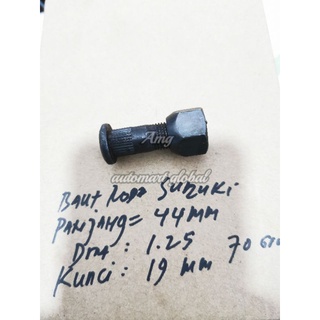 Amg
automart global
Baut Roda Suzuki
Panjang = 44 mm
Drat : 1.25
Kunci : 19 mm